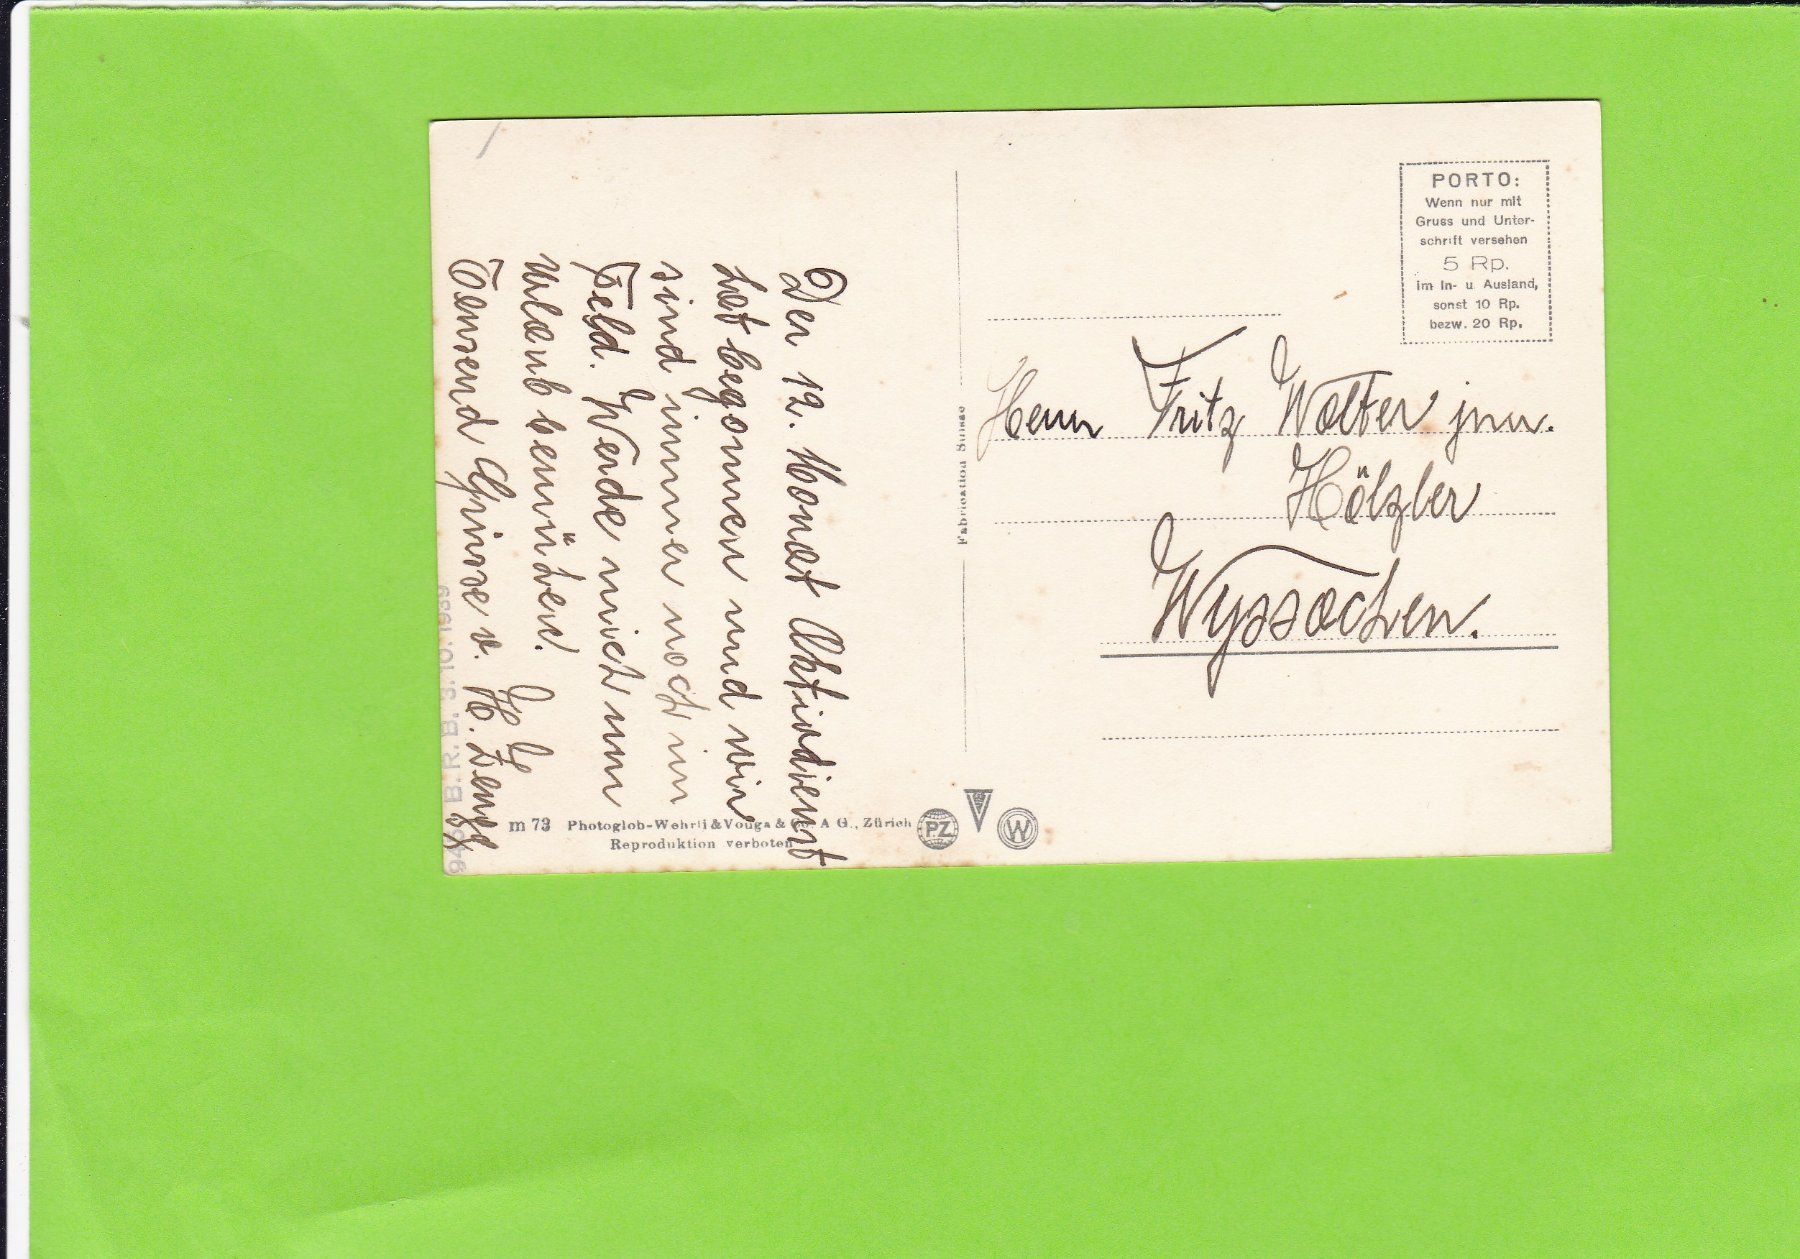 Der 12. Monat Aktivdienst
hat begonnen und wir
sind immer noch im
Feld. Werde mich um
Urlaub bemühen!
Tausend Grüsse v. H.
Fabrication Suisse
PORTO:
Wenn nur mit
Gruss und Unter-
schrift versehen
5 Rp.
im In- u Ausland,
sonst 10 Rp.
bezw. 20 Rp.
Herrn Fritz Walter jun.
Hölzler
Wyssachen.
m 73 Photoglob-Wehrli & Vouga & Co. A G., Zürich
Reproduktion verboten
PZ
V
W
B. R. B. 3. 10. 1939